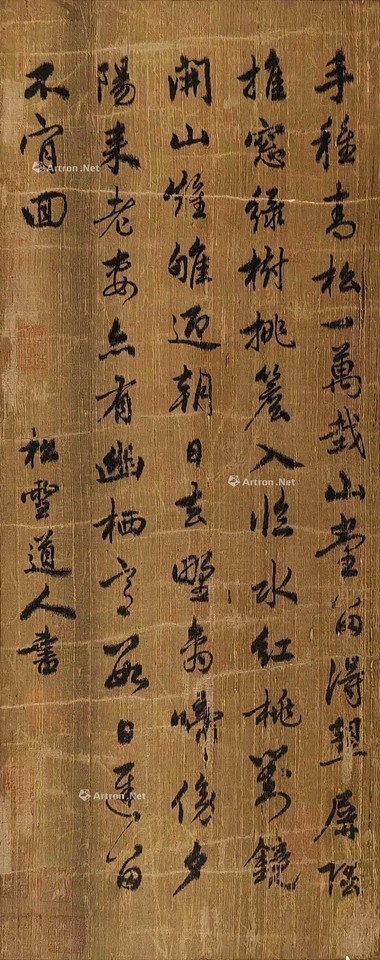 手種青松一萬栽山堂留得翠屏隈
推窓綠樹挑簷入臨水紅桃對鏡
開山雉雊迎朝日去野禽啼傍夕
陽來老妻亦有幽栖意數日遲留
不肯回
松雪道人書
Artron.Net
Artron.Net
Artron.Net